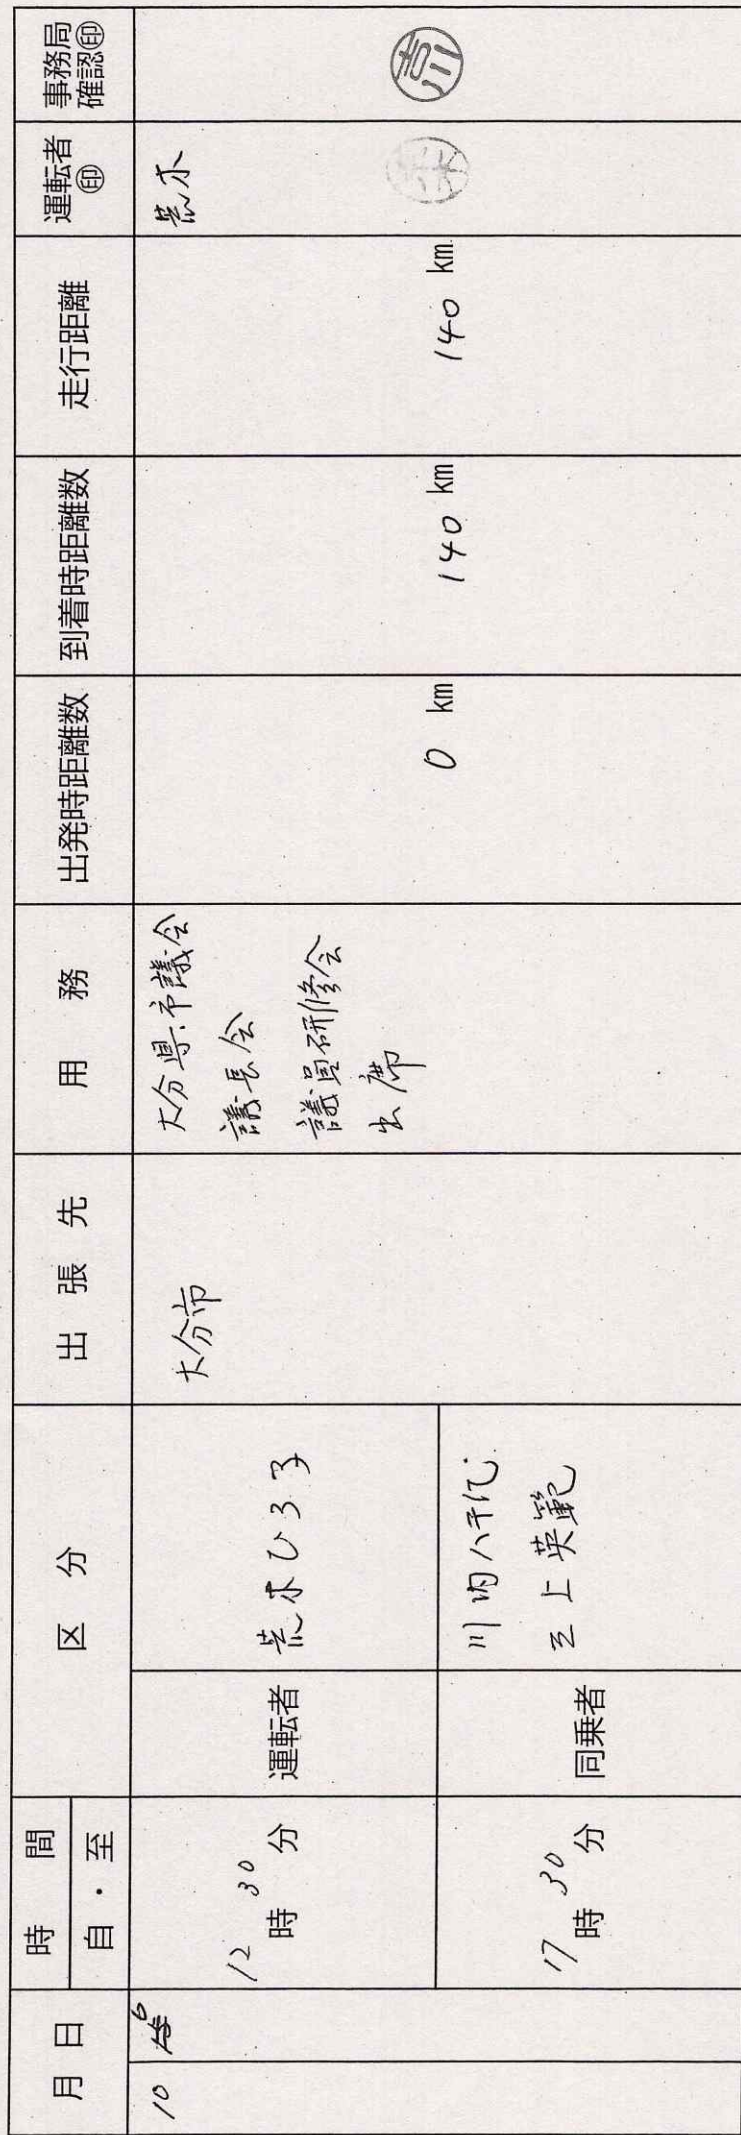 月 日
時 間
自・至
区 分
出 張 先
用 務
出発時距離数
到着時距離数
走行距離
運転者
㊞
事務局
確認㊞
10
6
12時30分
運転者
荒木ひろ子
大分市
大分県市議会
議長会
議員研修会
出席
0 km
140 km
140 km
荒木
17時30分
同乗者
川内八千代
三上英範